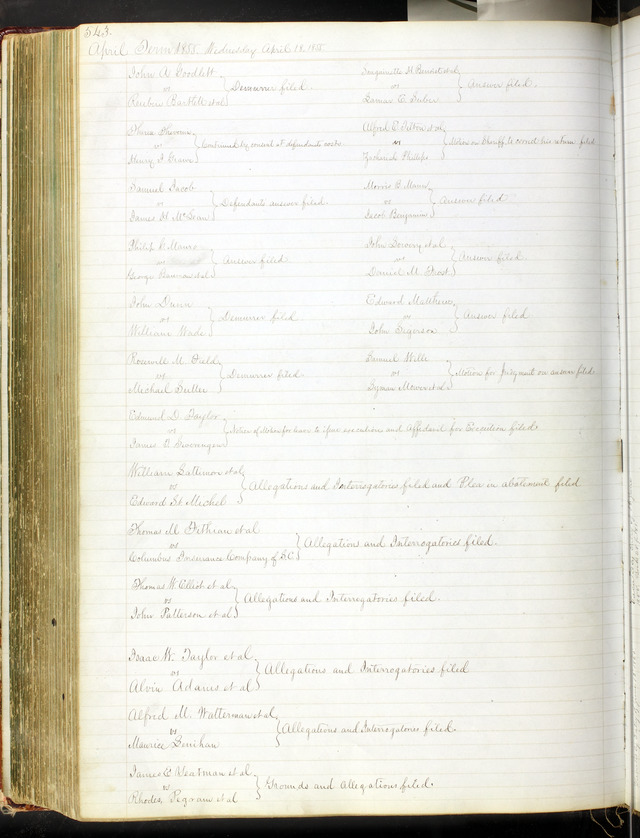 543.
April Term 1855. Wednesday April 18. 1855
John A. Goodlett
vs
Reuben Bartlett et al
Demurrer filed.
vs
Answer filed.
vs
Henry F. Green
Continued by consent at defendants costs
Alfred C. et al
vs
Zachariah Phillips
Motion on Sheriff to correct his return filed
Samuel Jacob
vs
James H. McLean
Defendants answer filed.
Morris B.
vs
Jacob Benjamin
Answer filed
Philip A. Mauro
vs
George et al
Answer filed
John et al
vs
Daniel M. Frost
Answer filed
John Dunn
vs
William Wade
Demurrer filed
Edward Matthews
vs
John Sigerson
Answer filed
Roswell M. Field
vs
Michael Butler
Demurrer filed.
Samuel Willi
vs
Lyman et al
Motion for judgment on answer filed
Edmund D. Taylor
vs
James
Notice of Motion for leave to issue executions and Affidavit for Execution filed
William Patterson et al
vs
Edward St. Michel
Allegations and Interrogatories filed and Plea in abatement filed
Thomas M. et al
vs
Columbus Insurance Company of S.C.
Allegation and Interrogatories filed.
Thomas W. Elliot et al
vs
John Patterson et al
Allegations and Interrogatories filed.
Isaac W. Taylor et al.
vs
Alvin Adams et al
Allegations and Interrogatories filed
Alfred M. Watterman et al
vs
Maurice Lenihan
Allegations and Interrogatories filed.
James E. Yeatman et al.
vs
Rhodes Pegram et al
Grounds and allegations filed.